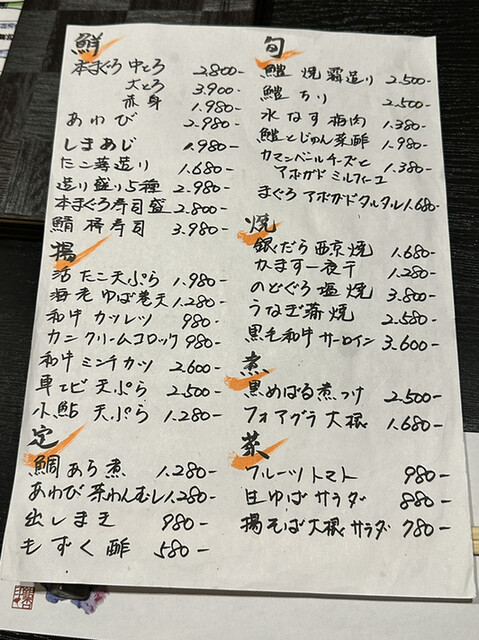 鮮
本まぐろ 中とろ 2.800-
大とろ 3.900-
赤身 1.980-
あわび 2.980-
しまあじ 1.980-
たこ薄造り 1.680-
造り盛り5種 2.980-
本まぐろ寿司盛 2.800-
鯖棒寿司 3.980-
揚
活たこ天ぷら 1.980-
海老ゆば巻天 1.280-
和牛カツレツ 980-
カニクリームコロッケ 980-
和牛ミンチカツ 2.600-
車エビ天ぷら 2.500-
小鮎天ぷら 1.280-
定
鯛あら煮 1.280-
あわび茶わんむし 1.280-
出しまき 980-
もずく酢 580-
旬
鱧焼霜造り 2.500-
鱧ちり 2.500-
水なす梅肉 1.380-
鱧とじゅん菜酢 1.980-
カマンベールチーズと
アボガドミルフィーユ 1.380-
まぐろアボガドタルタル 1.680-
焼
銀だら西京焼 1.680-
かます一夜干 1.280-
のどぐろ塩焼 3.800-
うなぎ蒲焼 2.580-
黒毛和牛サーロイン 3.600-
煮
黒めばる煮つけ 2.500-
フォアグラ大根 1.680-
菜
フルーツトマト 980-
甘ゆばサラダ 880-
揚そば大根サラダ 780-